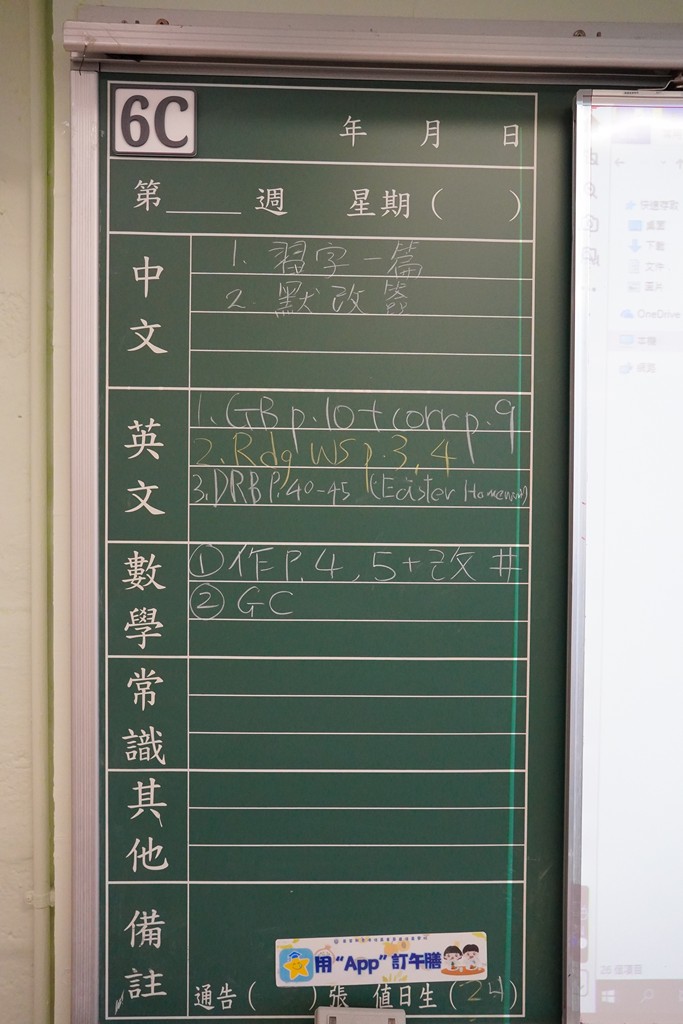 6C
年 月 日
第____週 星期( )
中文
1. 習字一篇
2. 默改簽
英文
1. GB p.10 + corr p.9
2. Rdg WS p.3, 4
3. DRB P.40-45 (Easter Homework)
數學
① 作 P.4, 5 + 改 #
② GC
常識
其他
備註
用“App”訂午膳
通告( )張 值日生(24)
快速存取
桌面
下載
文件
圖片
OneDrive
本機
網路